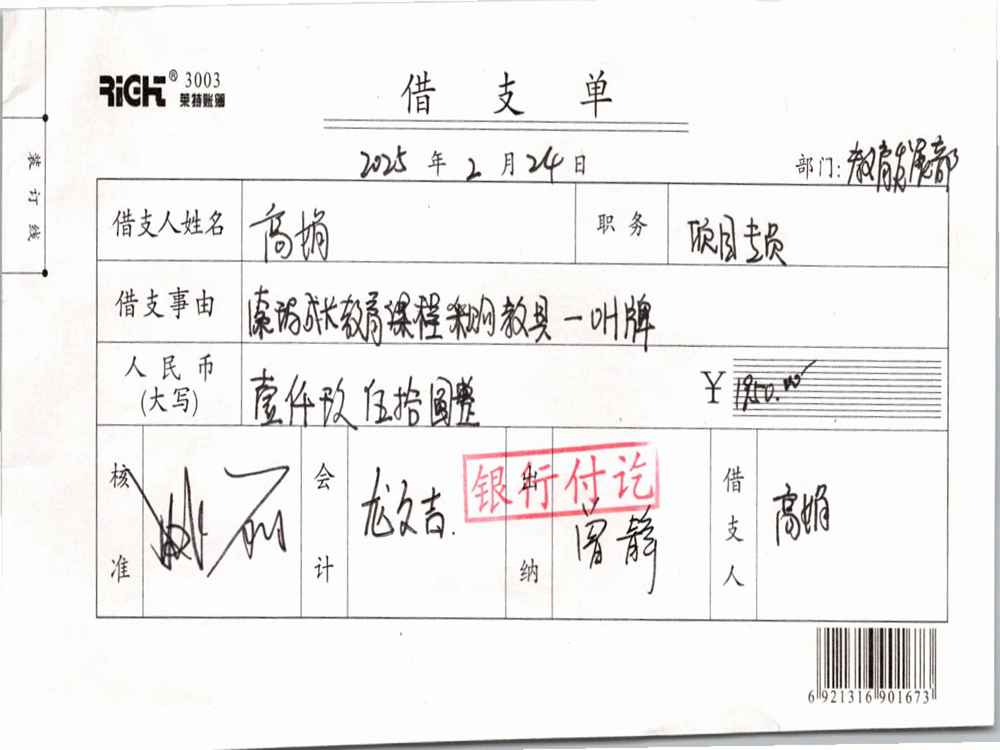 RiCHT® 3003
莱特账簿
借支单
2025年2月24日
部门:教育发展部
装订线
借支人姓名 高娟 职务 项目专员
借支事由 成长教育课程采购教具一叫牌
人民币(大写) 壹仟玖伍拾圆整 ¥1950.00
核准 会计 尤文吉. 出纳 曾静 借支人 高娟
银行付讫
6 921316 901673